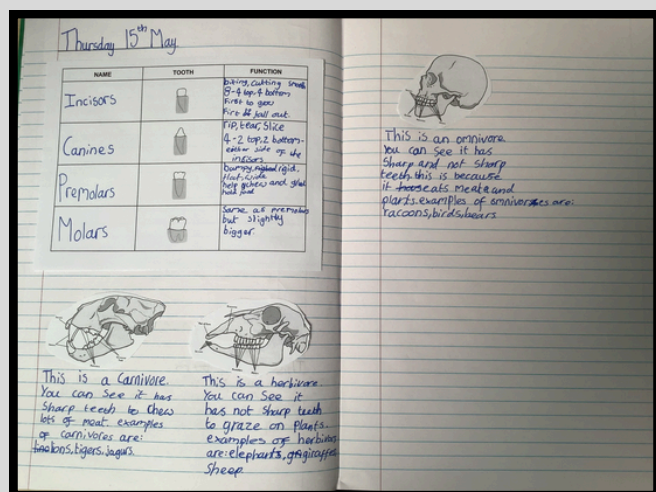 Thursday 15th May.
NAME TOOTH FUNCTION
Incisors
biting, cutting
8-4 top, 4 bottom
First to grow
First fall out.
Canines
rip, tear, slice
4-2 top, 2 bottom-
either side of the
incisors
Premolars
bumpy, rigid.
flat, wide
help chew and
hold food
Molars
Same as premolars
but slightly
bigger.
This is a Carnivore.
You can See it has
Sharp teeth to chew
lots of meat. examples
of carnivores are:
lions, tigers, jagurs.
This is a herbivore.
You can See it
has not sharp teeth
to graze on plants.
examples of herbivores
are: elephants, giraffes
Sheep
This is an omnivore.
You can see it has
Sharp and not sharp
teeth. this is because
it eats meat and
plants. examples of omnivores are:
racoons, birds, bears